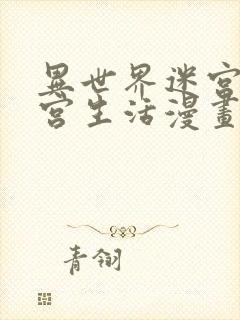 異世界迷宮
宮生活漫畫
青翎